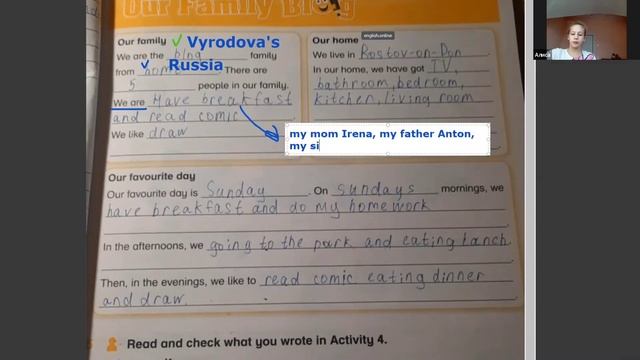 Our Family Blog
englishonline
Our family ✓ Vyrodova's
We are the blog family
from home ✓ Russia There are
5 people in our family.
We are Have breakfast
and read comic
We like draw
Our home
We live in Rostov-on-Don
In our home, we have got TV,
bathroom, bedroom,
kitchen, living room
my mom Irena, my father Anton,
my si
Our favourite day
Our favourite day is Sunday. On sundays mornings, we
have breakfast and do my homework
In the afternoons, we going to the park and eating lanch.
Then, in the evenings, we like to read comic eating dinner
and draw.
Read and check what you wrote in Activity 4.
Алиса